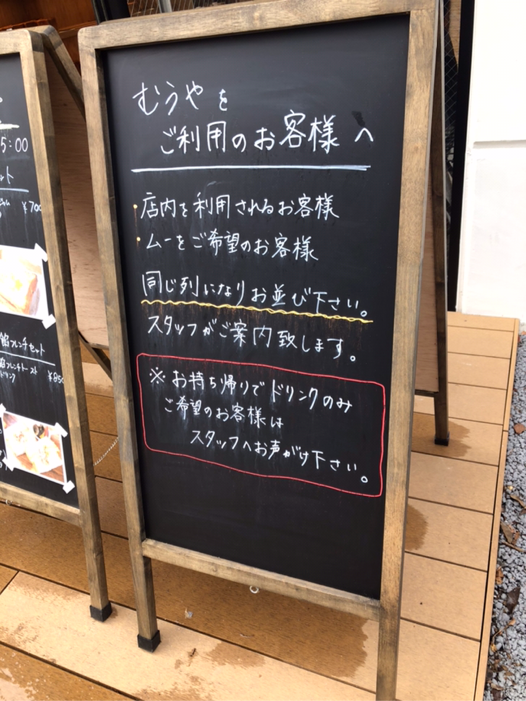 むうやを
ご利用のお客様へ
・店内を利用されるお客様
・ムーをご希望のお客様
同じ列になりお並び下さい。
スタッフがご案内致します。
※お持ち帰りでドリンクのみ
ご希望のお客様は
スタッフへお声がけ下さい。
5:00
ット
¥700
フレンチセット
フレンチトースト
リンク
¥850